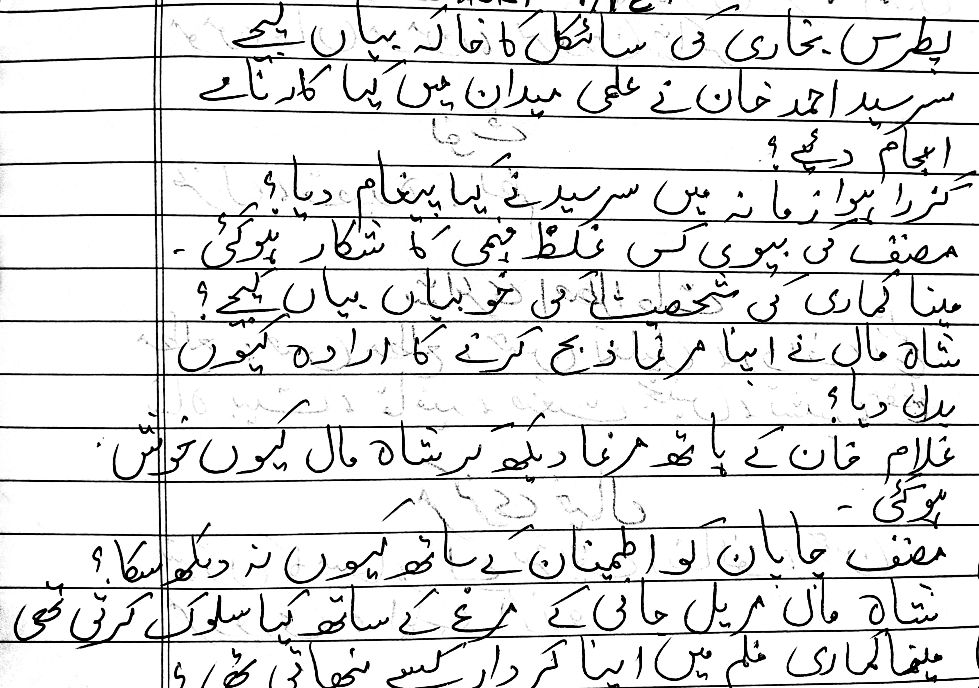 پطرس بخاری کی سائیکل کا خاکہ بیاں کیجے
سرسید احمد خان نے علمی میدان میں کیا کارنامے
انجام دئیے ؟
گزرا ہوا زمانہ میں سرسید نے کیا پیغام دیا؟
مصنف کی بیوی کس غلط فہمی کا شکار ہوگئی ۔
مینا کماری کی شخصیت کی خوبیاں بیاں کیجے ؟
شاہ مال نے اپنا مرغا ذبح کرنے کا ارادہ کیوں
بدل دیا؟
غلام خان کے ہاتھ مرغا دیکھ کر شاہ مال کیوں خوش
ہوگئی ۔
مصنف جاپان کو اطمینان کے ساتھ کیوں نہ دیکھ سکا؟
شاہ مال مریل جانی کے مرغ کے ساتھ کیا سلوک کرتی تھی
مینا کماری فلم میں اپنا کردار کیسے نبھاتی تھی ؟